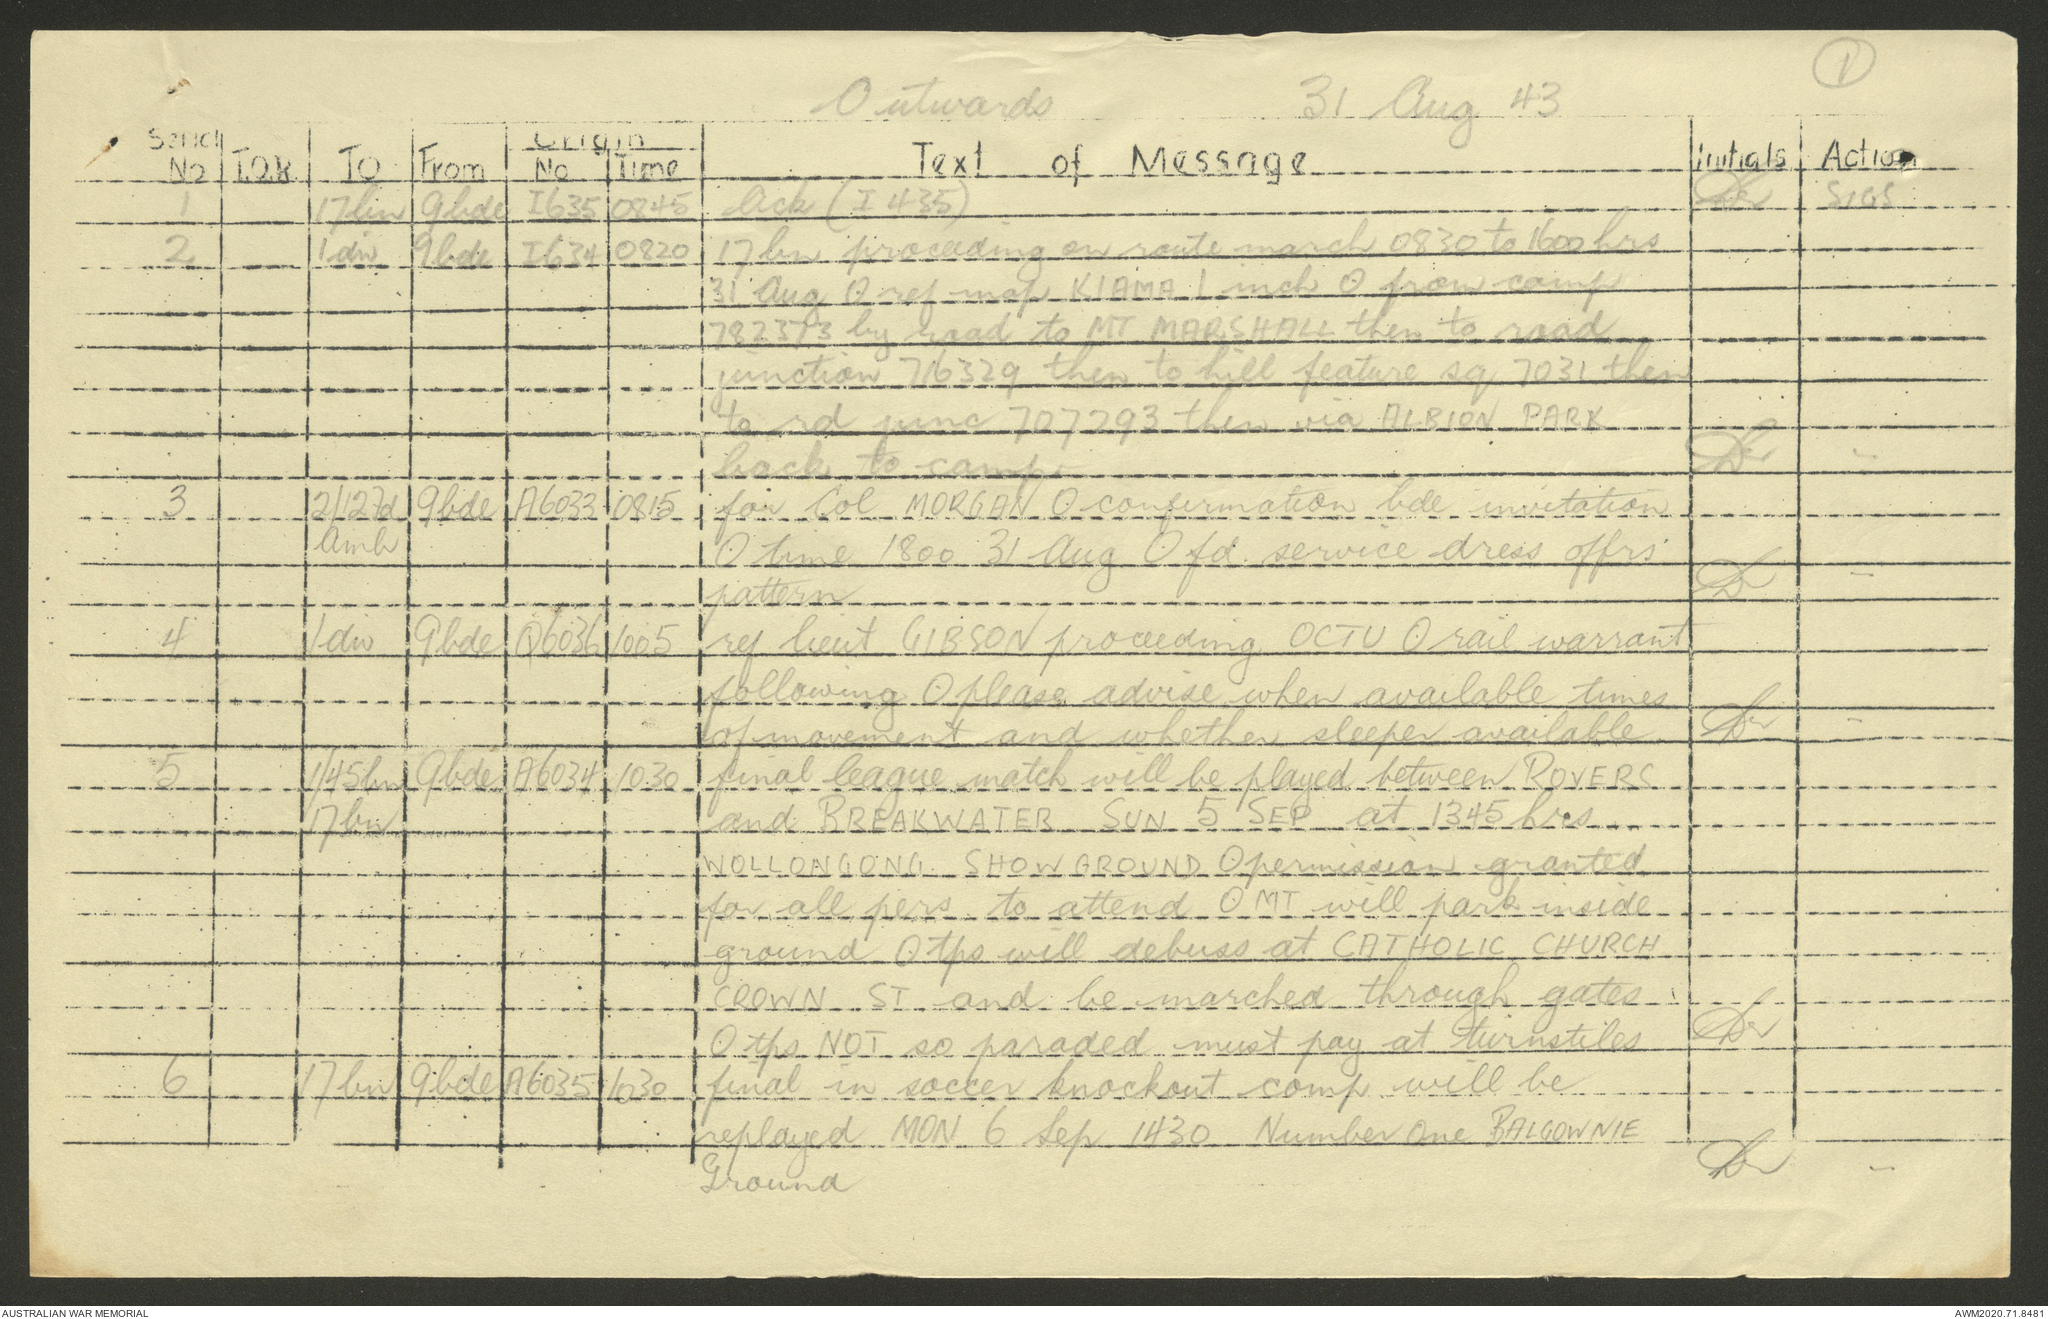 1
Outwards 31 Aug 43
Serial No T.O.R. TO From Origin No Time Text of Message Initials Action
1 17bn 9bde I635 0845 Ack (I 435) SIGS
2 1 div 9bde I634 0820 17 bn proceeding on route march 0830 to 1600 hrs
31 Aug O ref map KIAMA 1 inch O from camp
782373 by road to MT MARSHALL then to road
junction 716329 then to hill feature sq 7031 then
to rd junc 707293 then via ALBION PARK
back to camp -
3 2/12 Fd Amb 9bde A6033 0815 for Col MORGAN O confirmation bde invitation
O time 1800 31 Aug O fd. service dress offrs' -
pattern
4 1 div 9bde Q6036 1005 ref lieut GIBSON proceeding OCTU O rail warrant
following O please advise when available times
of movement and whether sleeper available -
5 1/45bn 9bde A6034 1030 final league match will be played between ROVERS
17 bn and BREAKWATER SUN 5 SEP at 1345 hrs
WOLLONGONG SHOWGROUND O permission granted
for all pers to attend O MT will park inside
ground O tps will debuss at CATHOLIC CHURCH
CROWN ST and be marched through gates
O tps NOT so paraded must pay at turnstiles -
6 17 bn 9bde A6035 1030 final in soccer knockout comp will be
replayed MON 6 Sep 1430 Number One BALGOWNIE
Ground -
AUSTRALIAN WAR MEMORIAL AWM2020.71.8481